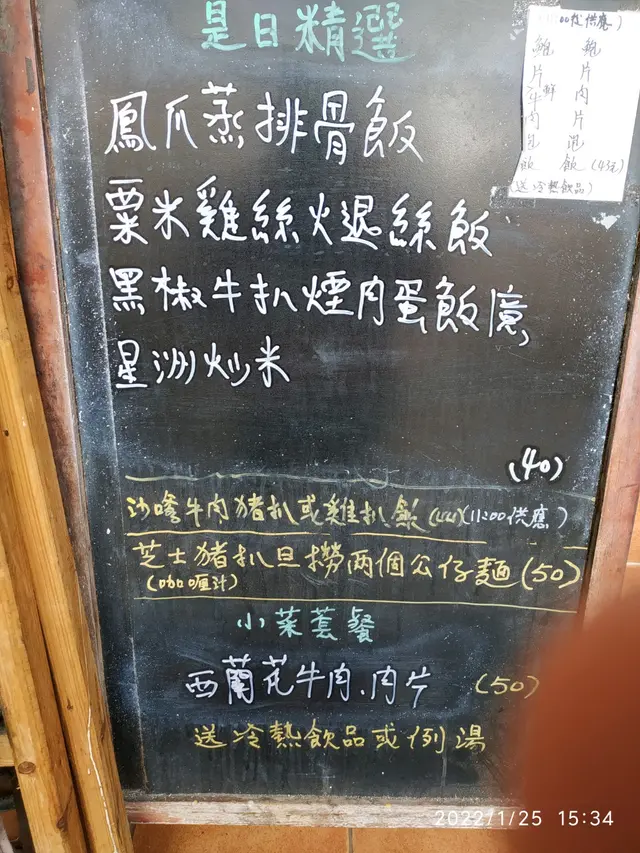 是日精選
鳳爪蒸排骨飯
粟米雞絲火退絲飯
黑椒牛扒煙肉蛋飯
星洲炒米
(40)
沙嗲牛肉豬扒或雞扒飯(44)(11:00供應)
芝士豬扒旦撈兩個公仔麵(50)
(喼汁)
小菜套餐
西蘭花牛肉、肉片 (50)
送冷熱飲品或例湯
供應)
鮑片
鮮牛肉
鮑片肉片泡飯(43元)
(送冷熱飲品)
2022/1/25 15:34